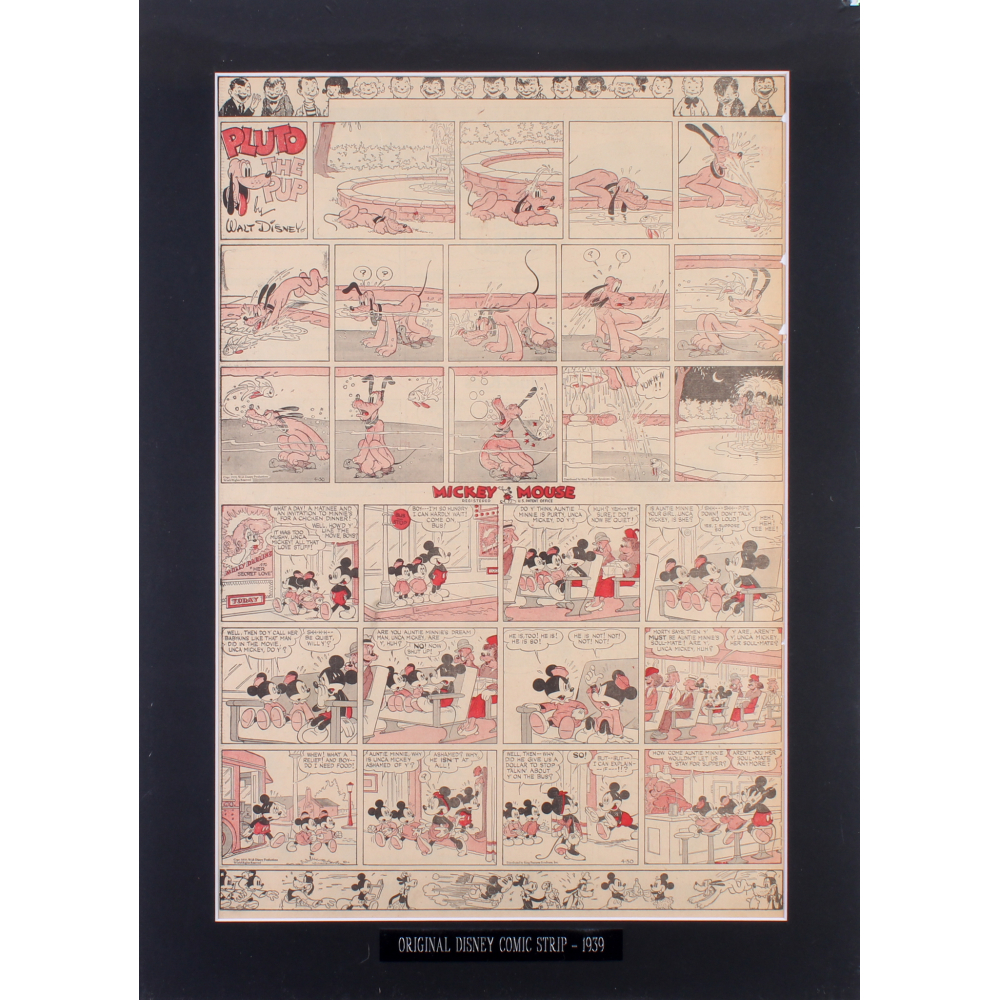 PLUTO
THE
PUP
by
WALT DISNEY
?
?
?
?
YOW-W-W
!!
MICKEY MOUSE
REGISTERED U.S. PATENT OFFICE
MOLLY DARLING
IN
"HER
SECRET LOVE"
TODAY
WHAT A DAY! A MATINEE AND
AN INVITATION TO MINNIE'S
FOR A CHICKEN DINNER!
WELL, HOW'D Y'
LIKE THE
MOVIE, BOYS?
IT WAS TOO
MUSHY, UNCA
MICKEY! ALL THAT
LOVE STUFF!
BOY--I'M SO HUNGRY
I CAN HARDLY WAIT!
COME ON,
BUS!
DO Y' THINK AUNTIE
MINNIE IS PURTY, UNCA
MICKEY, DO Y'?
HUH? YEH--YEH,
SURE, I DO!
NOW BE QUIET!
IS AUNTIE MINNIE
YOUR GIRL, UNCA
MICKEY, IS SHE?
SHH--SHH--TYPE
DOWN! DON'T TALK
SO LOUD!
YES, I SUPPOSE
SO!
HEH!
HEH!
HEH!
WELL, THEN DO Y' CALL HER
BABYKINS LIKE THAT MAN
DID IN THE MOVIE,
UNCA MICKEY, DO Y'?
SHH-HH--
BE QUIET,
WILL Y'?
ARE YOU AUNTIE MINNIE'S DREAM
MAN, UNCA MICKEY, ARE
Y', HUH?
NO! NOW
SHUT UP!
HE IS, TOO! HE IS!
HE IS SO!
HE IS NOT! NOT!
NOT! NOT!
MORTY SAYS, THEN Y'
MUST BE AUNTIE MINNIE'S
SOUL-MATE! ARE Y',
UNCA MICKEY, HUH?
Y' ARE, AREN'T
Y', UNCA MICKEY,
HER SOUL-MATE?
WHEW! WHAT A
RELIEF! AND BOY--
DO I NEED FOOD!
AUNTIE MINNIE, WHY
IS UNCA MICKEY
ASHAMED OF Y'?
?
ASHAMED? WHY,
HE ISN'T AT
ALL!
WELL, THEN--WHY
DID HE GIVE US A
DOLLAR TO STOP
TALKIN' ABOUT
Y' ON THE BUS?
SO!
BUT--BUT--
I CAN EXPLAIN--
4-30
HOW COME AUNTIE MINNIE
WOULDN'T LET US
STAY FOR SUPPER?
AREN'T YOU HER
SOUL-MATE
ANY MORE?
ORIGINAL DISNEY COMIC STRIP - 1939